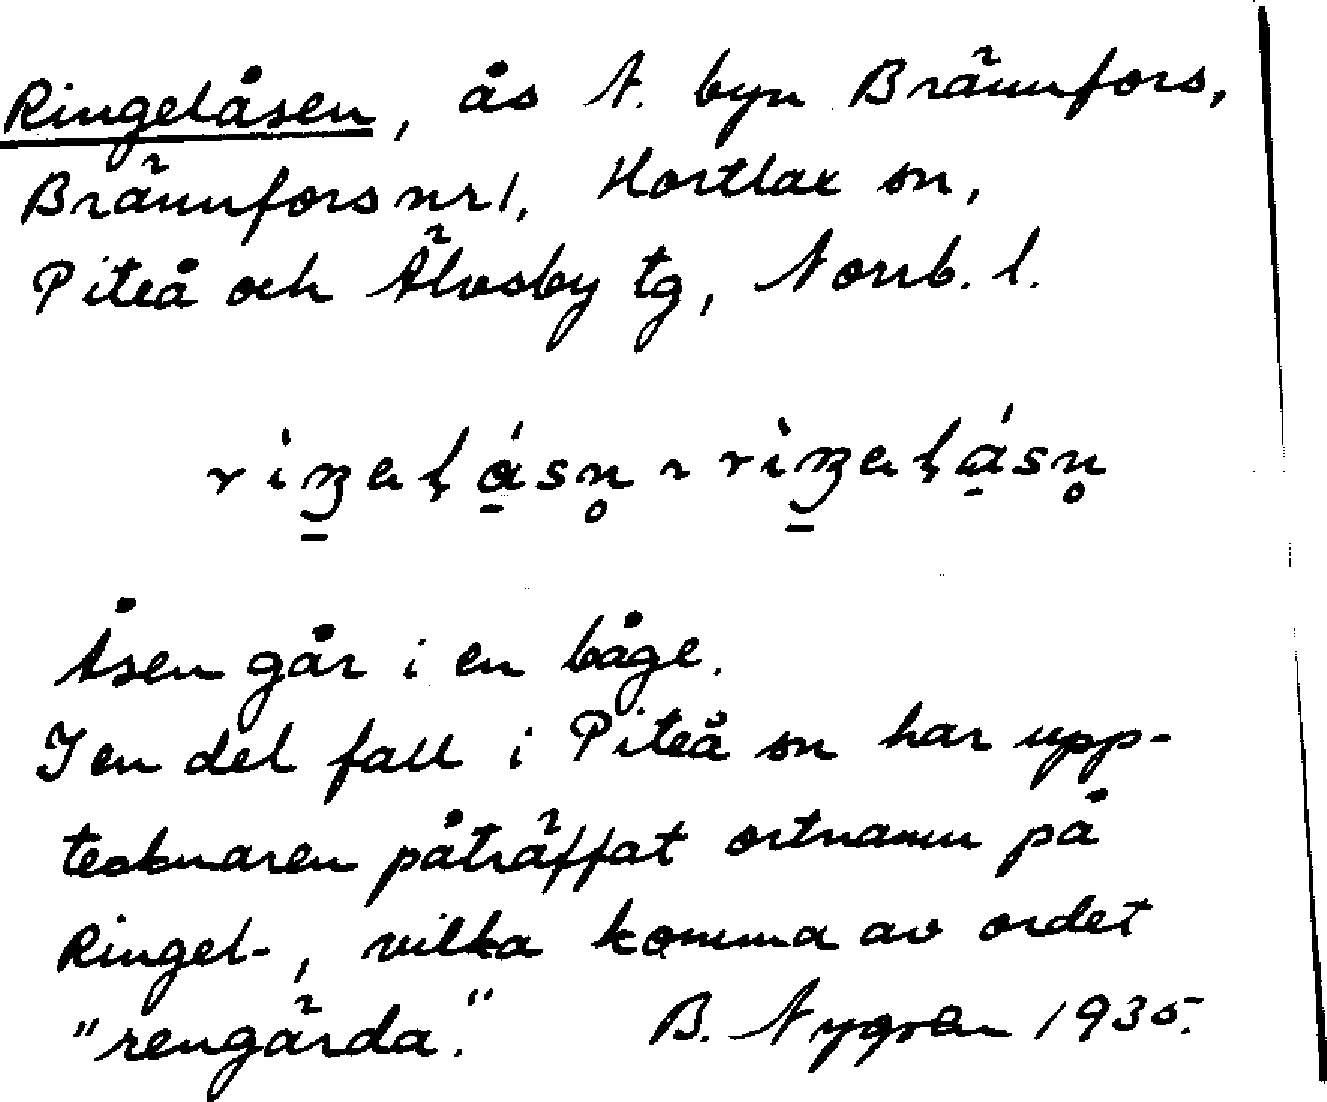 Ringelåsen, ås N. byn Brännfors,
Brännfors nr 1, Hortlax sn,
Piteå och Älvsby tg, Norrb. l.
Åsen går i en båge.
I en del fall i Piteå sn har upp-
tecknaren påträffat ortnamn på
Ringel-, vilka komma av ordet
"rengärda." B. Nygren 1935.